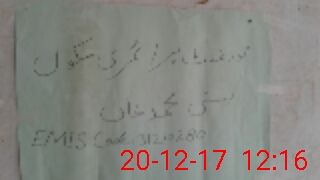 گورنمنٹ پرائمری سکول
بستی محمد خان
EMIS Code
20-12-17 12:16